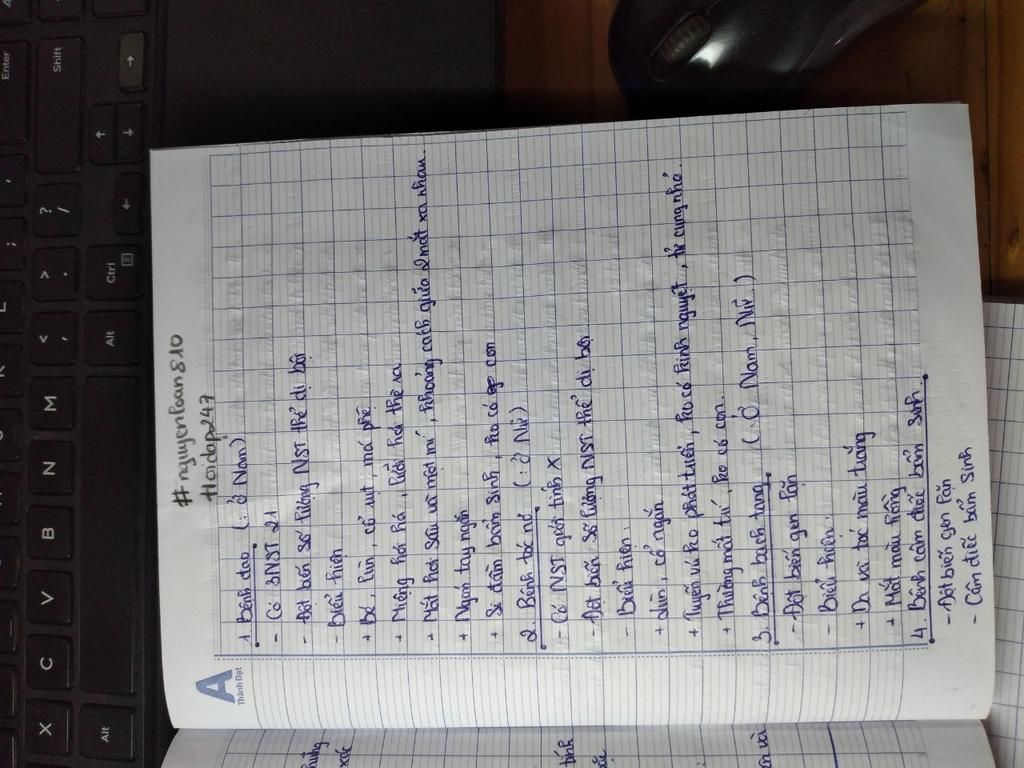 #nguyenloan810
Hoidap247
A
Thành Đạt
1. Bệnh đao. (: ở Nam)
- Có 3NST 21
- Đột biến số lượng NST thể dị bội
- Biểu hiện
+ Bé, lùn, cổ rụt, má phệ
+ Miệng hơi há, lưỡi hơi thè ra
+ Mắt hơi sâu và một mí, khoảng cách giữa 2 mắt xa nhau.
+ Ngón tay ngắn
+ Si đần bẩm sinh, ko có con
2. Bệnh tớc nơ (: ở Nữ)
- Có NST giới tính X
- Đột biến số lượng NST thể dị bội
- Biểu hiện:
+ Lùn, cổ ngắn
+ Tuyến vú ko phát triển, ko có kinh nguyệt, tử cung nhỏ.
+ Thường mất trí, ko có con.
3. Bệnh bạch tạng. (: Ở Nam, Nữ)
- Đột biến gen lặn
- Biểu hiện:
+ Da và tóc màu trắng
+ Mắt màu hồng
4. Bệnh câm điếc bẩm sinh.
- Đột biến gen lặn
- Câm điếc bẩm sinh
Enter
Shift
Ctrl
Alt
? /
> .
< ,
M
N
B
V
C
X
Alt